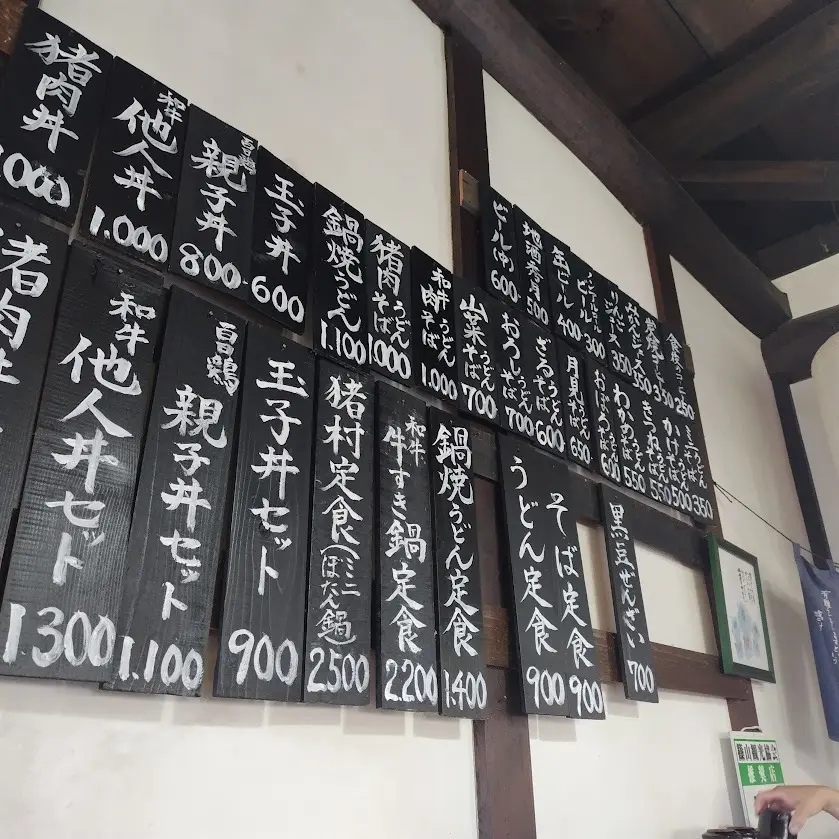 猪肉丼
和牛
他人丼
1.000
百日鶏
親子丼
800
玉子丼
600
鍋焼うどん
1.100
猪肉
うどん
そば
1.000
和牛
肉
うどん
そば
1.000
山菜
うどん
そば
700
おろし
うどん
そば
700
ざる
うどん
そば
600
月見
うどん
そば
650
600
わかめ
うどん
そば
550
きつね
うどん
そば
550
かけ
うどん
そば
500
350
ビール(中)
600
地酒秀月
500
生ビール
400
ノンアルコール
ビール
300
りんご
ジュース
350
350
350
250
猪肉丼
和牛
他人丼セット
1300
百日鶏
親子丼セット
1.100
玉子丼セット
900
猪村定食(ミニ
ぼたん鍋)
2500
和牛
牛すき鍋定食
2.200
鍋焼うどん定食
1.400
そば定食
900
うどん定食
900
黒豆ぜんざい
700
篠山観光協会
推奨店